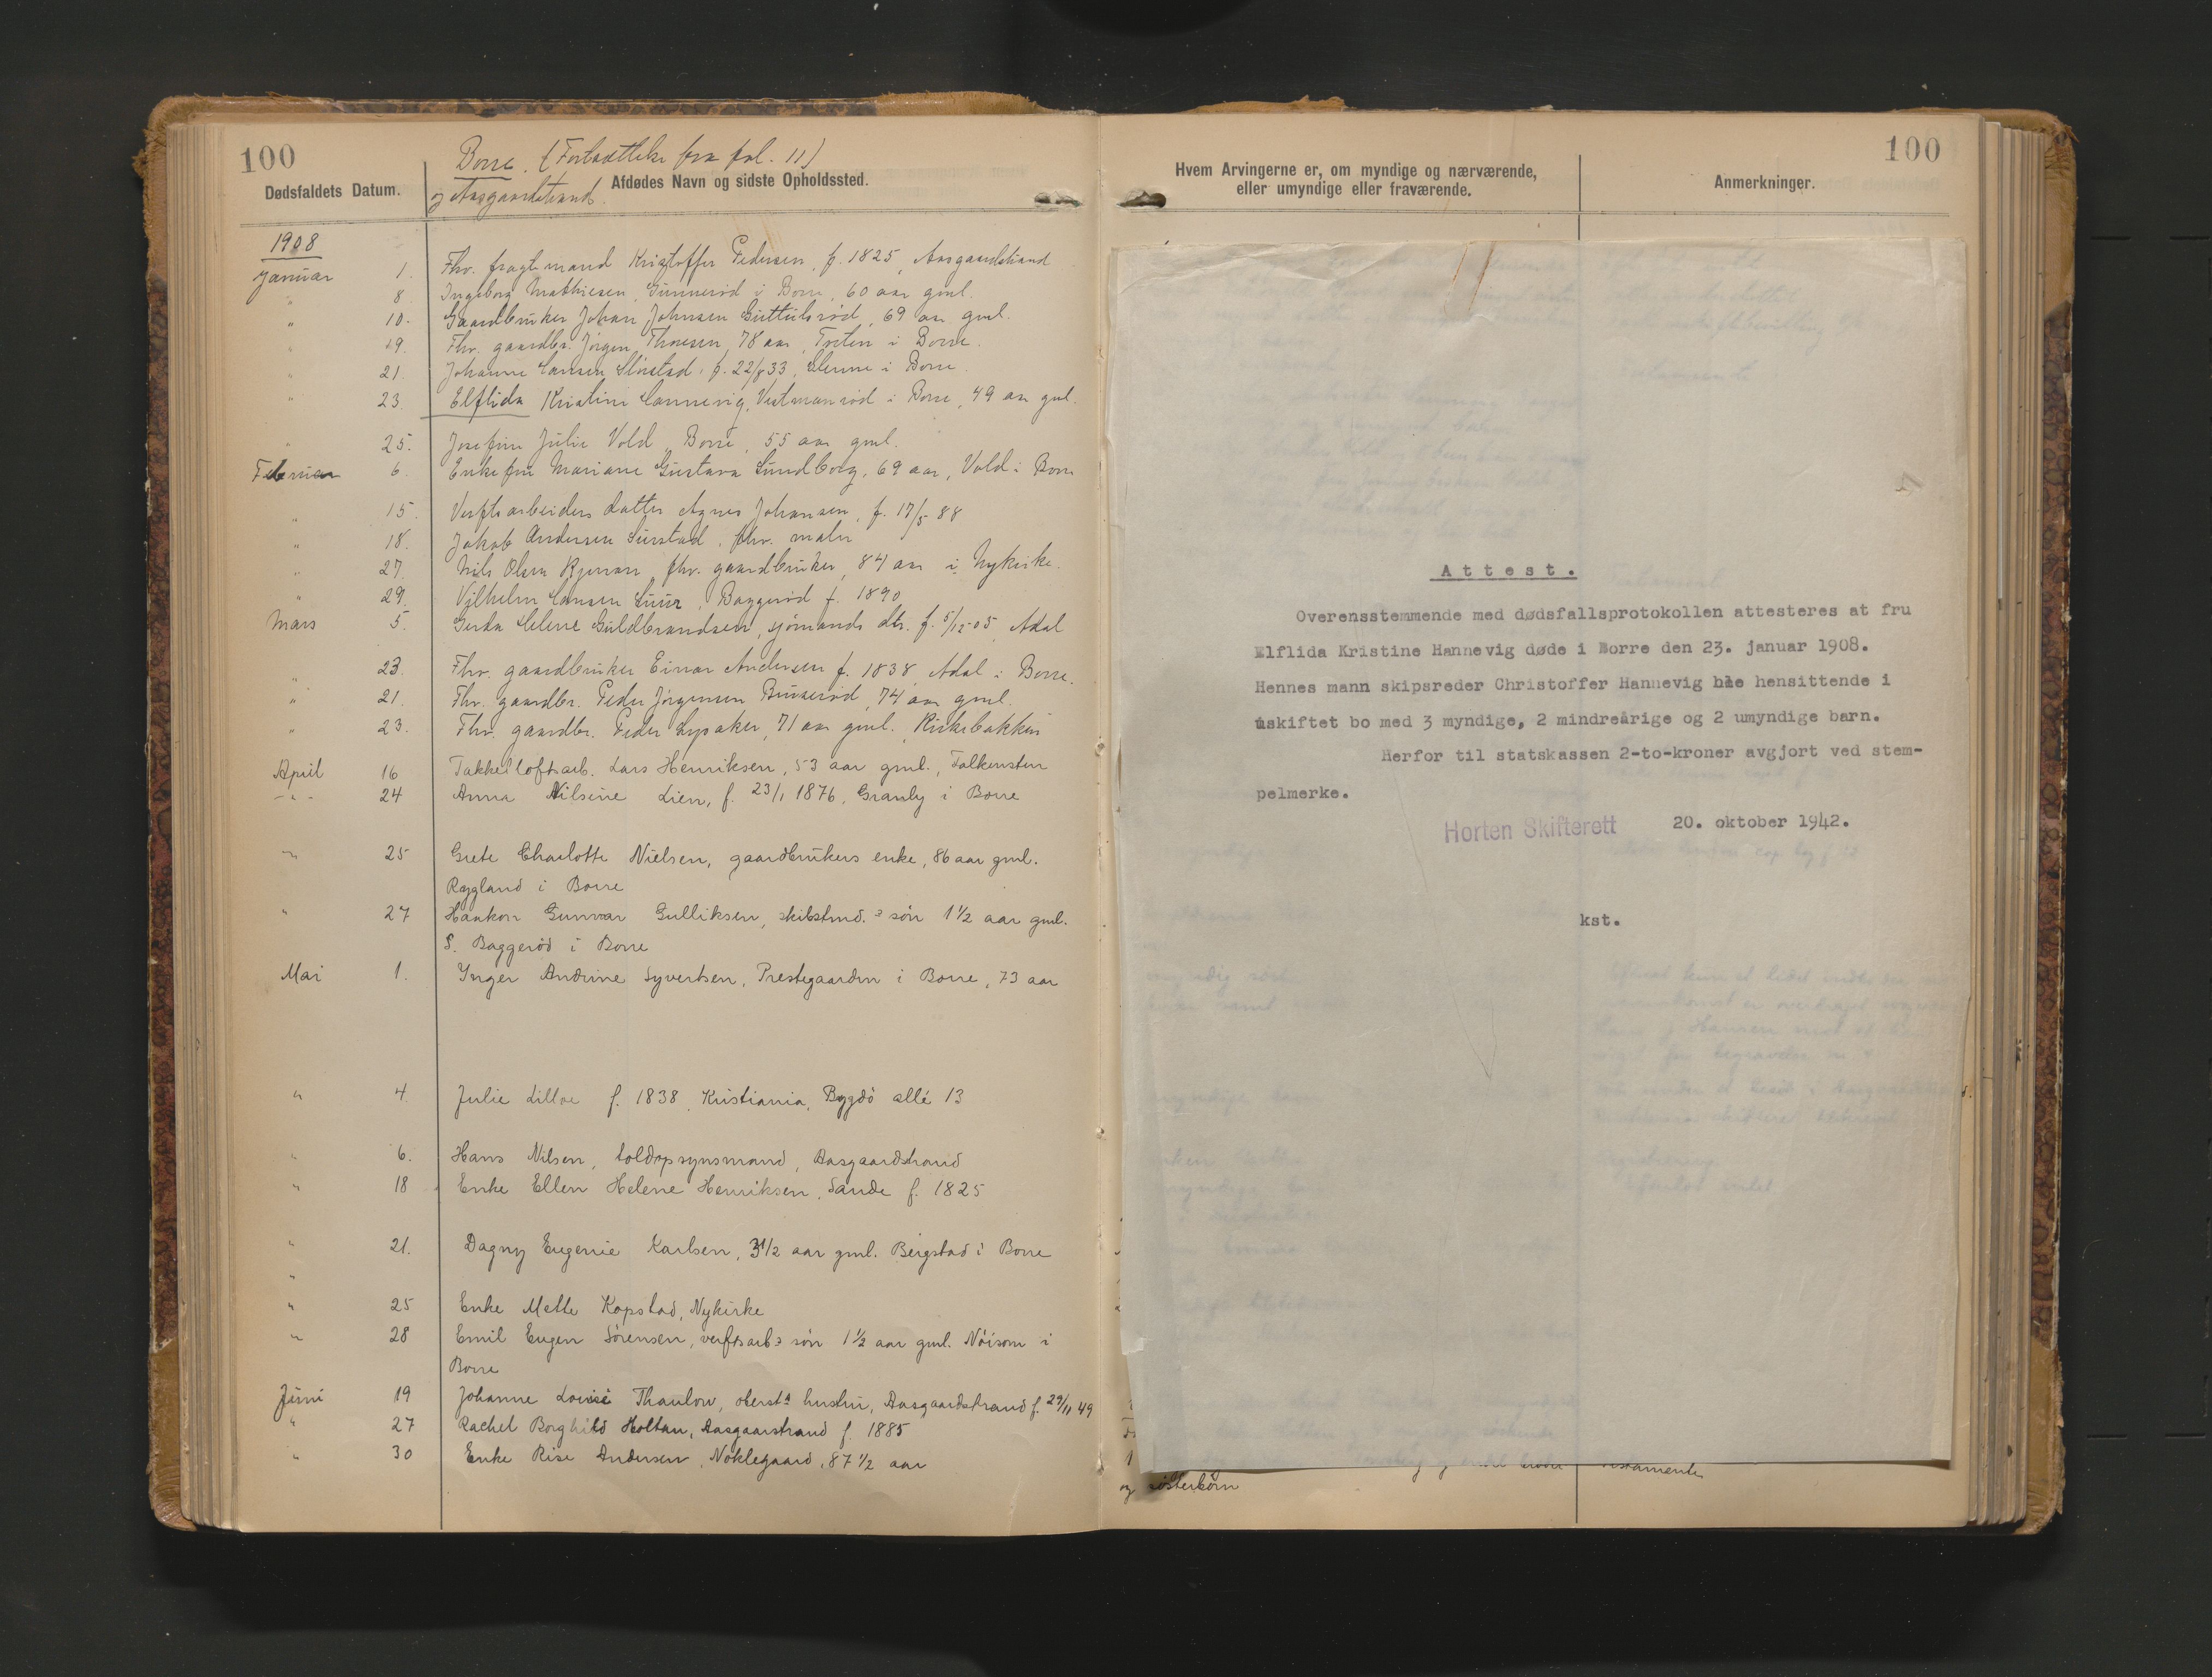 100
Borre. (Fortsættelse fra fol. 11)
og Aasgaardstrand.
Dødsfaldets Datum.
Afdødes Navn og sidste Opholdssted.
1908
Januar 1. Fhv. fragtemand Kristoffer Pedersen, f. 1825, Aasgaardstrand
" 8 Ingeborg Mathiesen, Gunnerød i Borre, 60 aar gml.
" 10. Gaardbruker Johan Johnsen Guttulsrød, 69 aar gml.
" 19. Fhv. gaardbr. Jørgen Thoresen, 78 aar, Treten i Borre.
" 21. Johanne Hansen, f. 22/8 33, Glenne i Borre.
" 23. Elflida Kristine Hannevig, Vestmanrød i Borre, 49 aar gml.
" 25. Josefine Julie Vold, Borre, 55 aar gml.
Februar 6. Enkefru Mariane Gustava Sundborg, 69 aar, Vold i Borre
" 15. Verftsarbeiders datter Agnes Johansen, f. 17/5 88
" 18. Jakob Andersen, fhv. maler
" 27. Nils Olsen, fhv. gaardbruker, 84 aar i Nykirke.
" 29. Vilhelm Hansen, Baggerød f. 1890
Mars 5. Gerda Helene Guldbrandsen, sjømands dtr. f. 5/12-05, Adal
" 23. Fhv. gaardbruker Einar Andersen f. 1838, Adal i Borre.
" 21. Fhv. gaardbr. Peder Jørgensen Bruserød, 74 aar gml.
" 23. Fhv. gaardbr. Peder Lypaker, 71 aar gml., Kirkebakken
April 16 Takkelloftsarb. Lars Henriksen, 53 aar gml., Falkensten
-"- 24 Anna Nilsine Lien, f. 23/1 1876, Granly i Borre
" 25 Grete Charlotte Nielsen, gaardbrukers enke, 86 aar gml.
Rygland i Borre
" 27 Haakon Gunvar Gulliksen, skibstmd.s søn 1 1/2 aar gml.
S. Baggerød i Borre
Mai 1. Inger Andrine Syvertsen, Prestegaarden i Borre, 73 aar
" 4. Julie Lilloe f. 1838, Kristiania, Bygdö allé 13
" 6. Hans Nilsen, toldopsynsmand, Aasgaardstrand
" 18 Enke Ellen Helene Henriksen, Sande f. 1825
" 21. Dagny Eugenie Karlsen, 3 1/2 aar gml. Bergstad i Borre
"
" 25 Enke Mette Kopstad, Nykirke
" 28 Emil Eugen Sörensen, verftsarb.s søn 1 1/2 aar gml. Nöisom i
Borre
Juni 19 Johanne Lovise Thaulow, obersts hustru, Aasgaardstrand f. 29/11 49
" 27 Rachel Borghild Holtan, Aasgaarstrand f. 1885
" 30 Enke Rise Andersen, Nöklegaard, 87 1/2 aar
100
Hvem Arvingerne er, om myndige og nærværende,
eller umyndige eller fraværende.
Anmerkninger.
Attest.
Overensstemmende med dødsfallsprotokollen attesteres at fru
Elflida Kristine Hannevig døde i Borre den 23. januar 1908.
Hennes mann skipsreder Christoffer Hannevig ble hensittende i
uskiftet bo med 3 myndige, 2 mindreårige og 2 umyndige barn.
Herfor til statskassen 2-to-kroner avgjort ved stem-
pelmerke.
Horten Skifterett 20. oktober 1942.
kst.
og søsterbörn